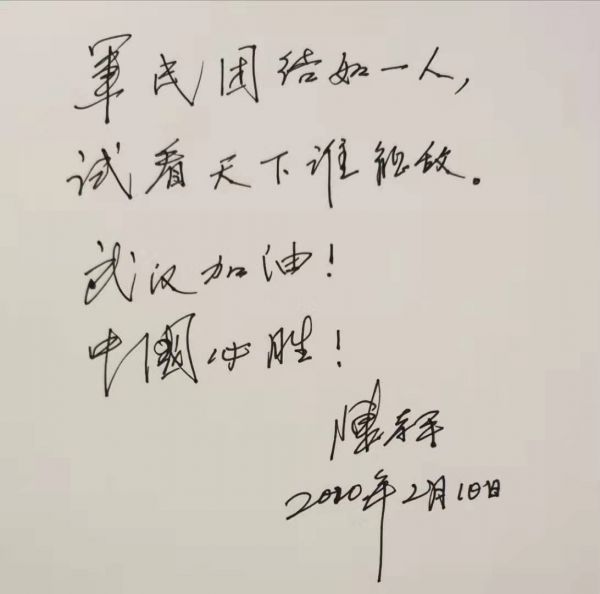 軍民团结如一人，
试看天下谁能敌。
武汉加油！
中國必胜！
陳
2020年2月10日